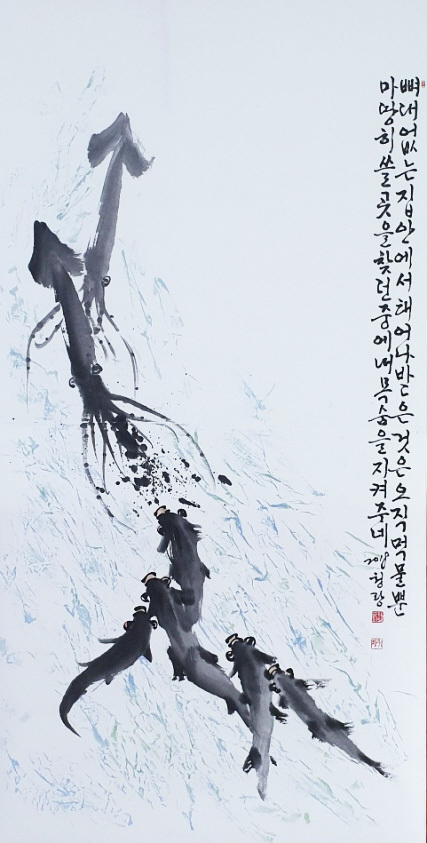 뼈대없는집안에서태어나받은것은오직먹물뿐
마땅히쓸곳을찾던중에내목숨을지켜주네
청랑